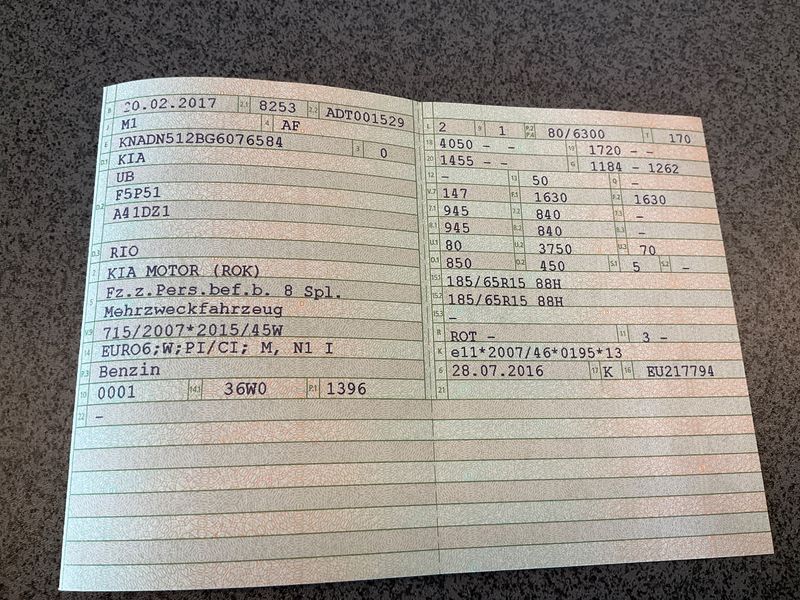 B 20.02.2017 2.1 8253 2.2 ADT001529
J M1 4 AF
E KNADN512BG6076584 3 0
D.1 KIA
UB
D.2 F5P51
A41DZ1
D.3 RIO
2 KIA MOTOR (ROK)
5 Fz.z.Pers.bef.b. 8 Spl.
Mehrzweckfahrzeug
V.9 715/2007*2015/45W
14 EURO6;W;PI/CI; M, N1 I
P.3 Benzin
10 0001 14.1 36W0 P.1 1396
22 –
L 2 9 1 P.2 P.4 80/6300 T 170
18 4050 – – 19 1720 – –
20 1455 – – G 1184 - 1262
12 – 13 50 Q –
V.7 147 F.1 1630 F.2 1630
7.1 945 7.2 840 7.3 –
8.1 945 8.2 840 8.3 –
U.1 80 U.2 3750 U.3 70
O.1 850 O.2 450 S.1 5 S.2 –
15.1 185/65R15 88H
15.2 185/65R15 88H
15.3 –
R ROT – 11 3 –
K e11*2007/46*0195*13
6 28.07.2016 17 K 16 EU217794
21